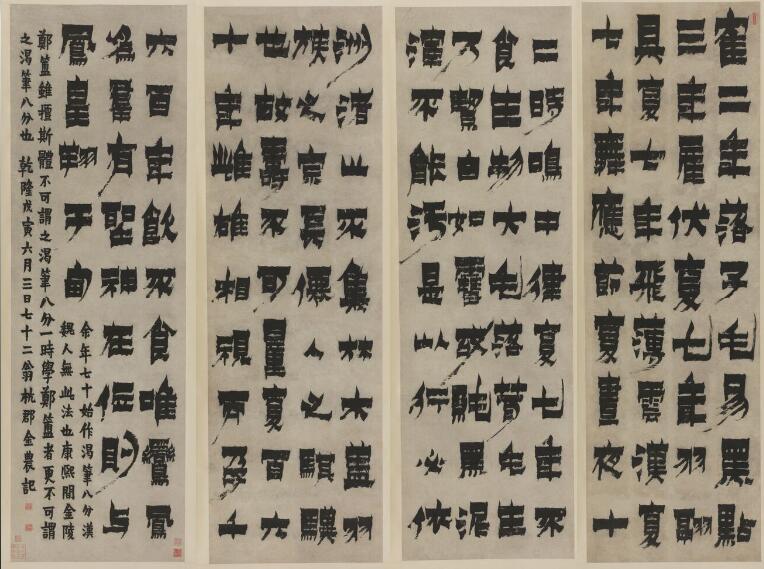 隺二年落子毛易黑點
三年雇伏夏七年羽翮
具夏七年飛薄雲漢夏
七年舞應節夏晝夜十
二時鳴中律夏七年不
食生物大毛落茸毛生
乃白如雪故純黑泥
渾不能污是以行必依
洲渚止不集林木蓋羽
族之宗長僊人之騏驥
也故壽不可量夏百六
十年雌雄相視而孕千
六百年飲不食唯鸞鳳
爲羣有聖神在位則與
鳳皇翔于甸
余年七十始作渴筆八分漢
魏人無此法也康熙間金陵
鄭簠雖擅斯體不可謂之渴筆八分一時學鄭簠者更不可謂
之渴筆八分也 乾隆戊寅六月三日七十二翁杭郡金農記